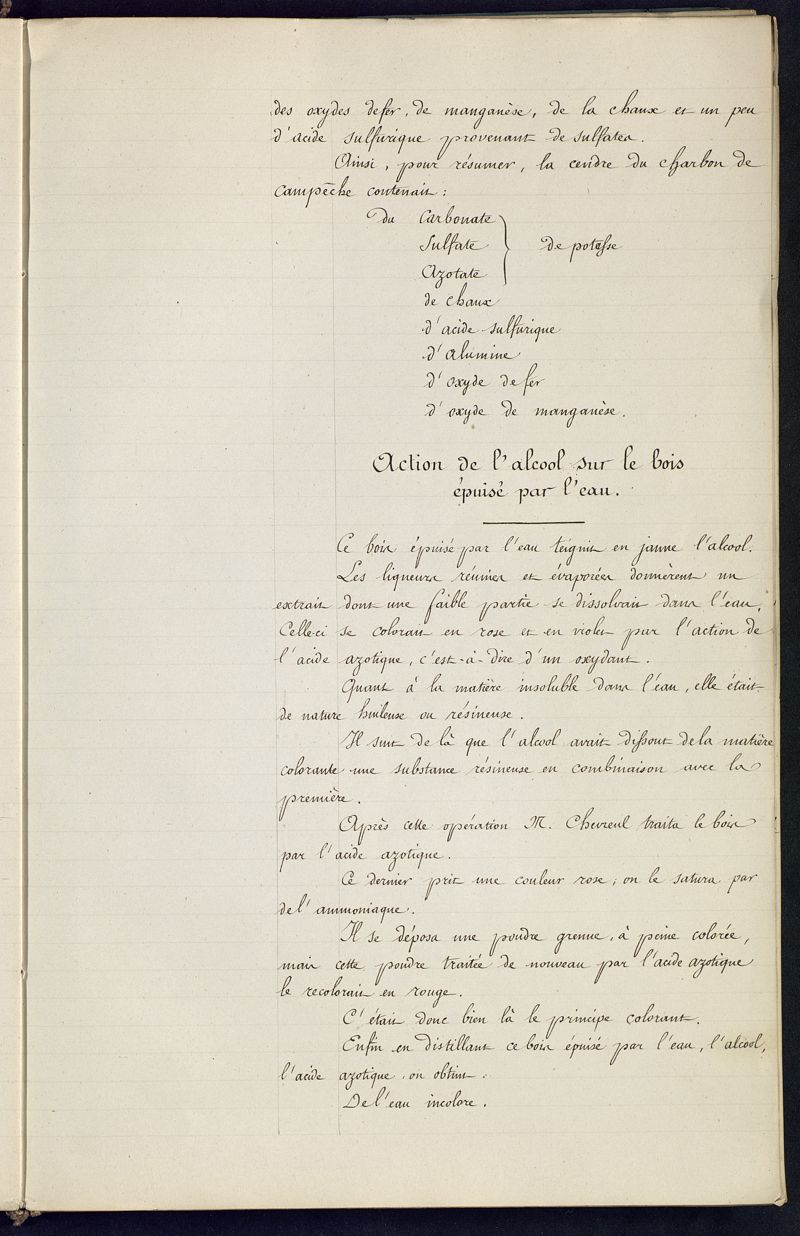 des oxydes de fer, de manganèse, de la chaux et un peu
d'acide sulfurique provenant de sulfates.
Ainsi, pour résumer, la cendre du charbon de
Campêche contenait :
Du Carbonate
Sulfate } de potasse
Azotate
de chaux
d'acide sulfurique
d'alumine
d'oxyde de fer
d'oxyde de manganèse.
Action de l'alcool sur le bois
épuisé par l'eau.
Ce bois épuisé par l'eau teignit en jaune l'alcool.
Les liqueurs réunies et évaporées donnèrent un
extrait dont une faible partie se dissolvait dans l'eau.
Celle-ci se colorait en rose et en violet par l'action de
l'acide azotique, c'est-à-dire d'un oxydant.
Quant à la matière insoluble dans l'eau, elle était
de nature huileuse ou résineuse.
Il suit de là que l'alcool avait dissout de la matière
colorante une substance résineuse en combinaison avec la
première.
Après cette opération M. Chevreul traita le bois
par l'acide azotique.
Ce dernier prit une couleur rose ; on le satura par
de l'ammoniaque.
Il se déposa une poudre grenue, à peine colorée,
mais cette poudre traitée de nouveau par l'acide azotique
le recolorait en rouge.
C'était donc bien là le principe colorant.
Enfin en distillant ce bois épuisé par l'eau, l'alcool,
l'acide azotique, on obtint :
De l'eau incolore.